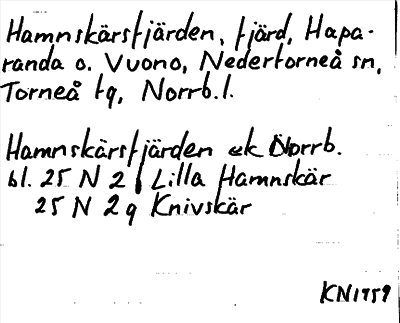 Hamnskärsfjärden, fjärd, Hapa-
randa o. Vuono, Nedertorneå sn,
Torneå tg, Norrb.l.
Hamnskärsfjärden ek Norrb.
bl. 25 N 2 Lilla Hamnskär
25 N 2 g Knivskär
KN1959